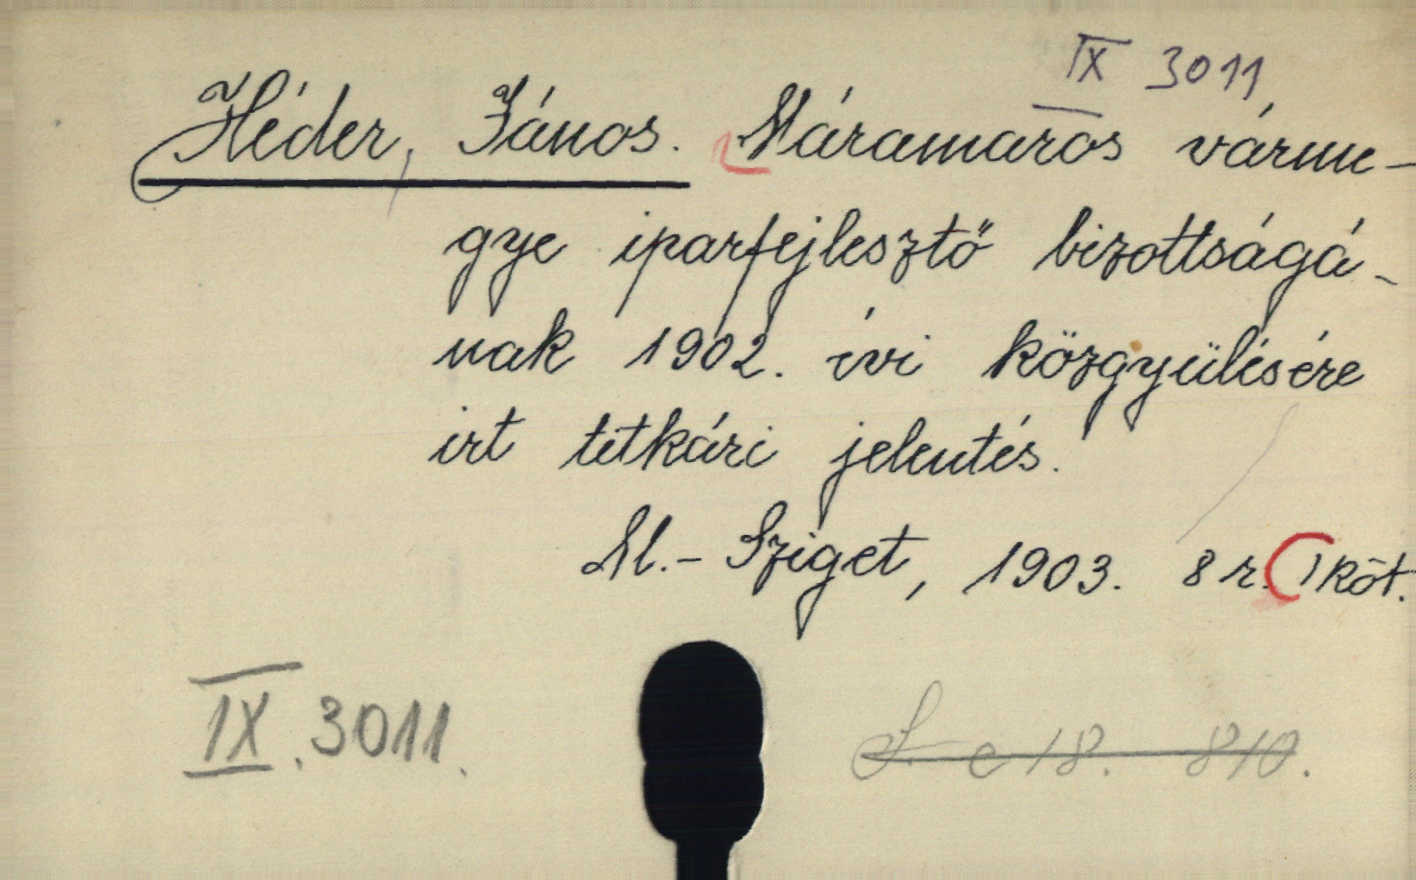 IX 3011
Héder, János. Máramaros várme-
gye iparfejlesztő bizottságá-
nak 1902. évi közgyülésére
irt titkári jelentés.
M.-Sziget, 1903. 8 r. 1 köt.
IX. 3011.
c 18. 810.